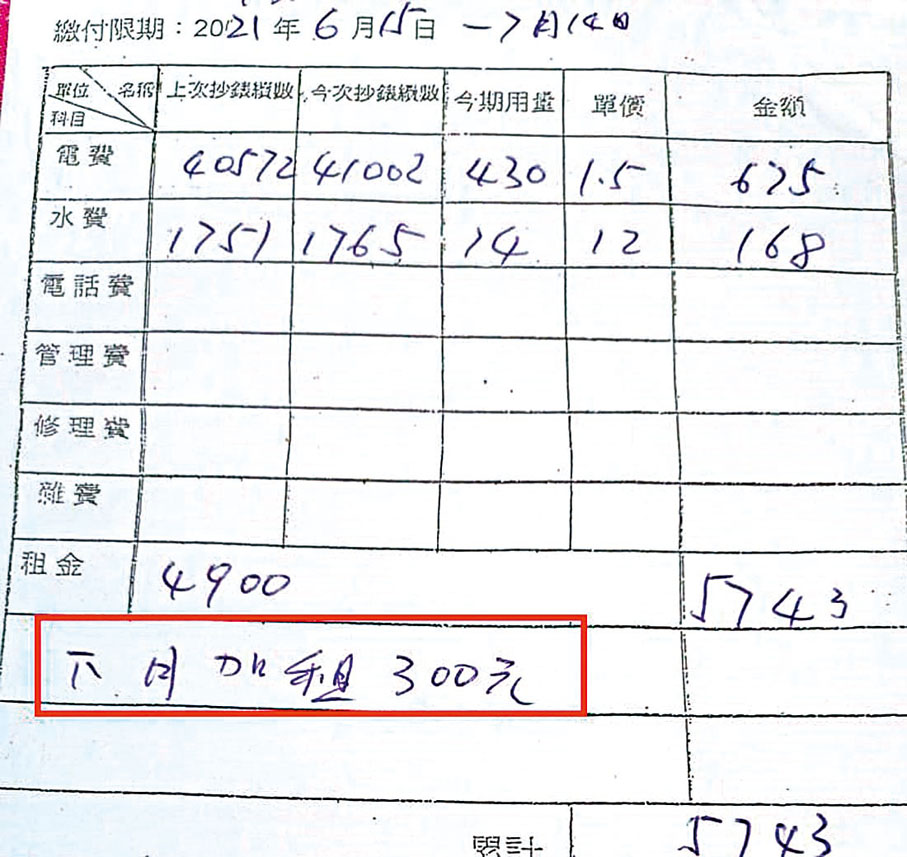 繳付限期：2021年6月15日一7月14日
單位 名稱 上次抄錶續數 今次抄錶續數 今期用量 單價 金額
科目
電費 40572 41002 430 1.5 675
水費 1751 1765 14 12 168
電話費
管理費
修理費
雜費
租金 4900 5743
下月加租300元
累計 5743